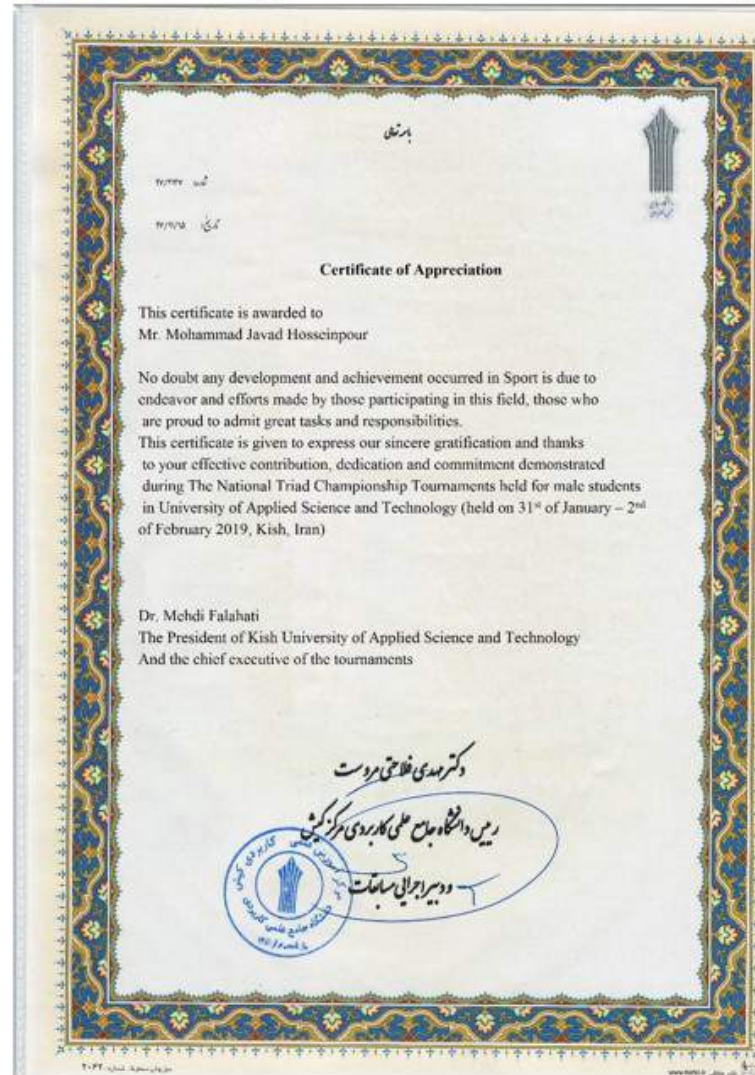 باسمه تعالی
شماره:
تاریخ:
Certificate of Appreciation
This certificate is awarded to
Mr. Mohammad Javad Hosseinpour
No doubt any development and achievement occurred in Sport is due to
endeavor and efforts made by those participating in this field, those who
are proud to admit great tasks and responsibilities.
This certificate is given to express our sincere gratification and thanks
to your effective contribution, dedication and commitment demonstrated
during The National Triad Championship Tournaments held for male students
in University of Applied Science and Technology (held on 31st of January – 2nd
of February 2019, Kish, Iran)
Dr. Mehdi Falahati
The President of Kish University of Applied Science and Technology
And the chief executive of the tournaments
دکتر مهدی فلاحتی مروست
رییس دانشگاه جامع علمی کاربردی مرکز کیش
و دبیر اجرایی مسابقات
مرکز آموزش علمی کاربردی کیش
دانشگاه جامع علمی کاربردی